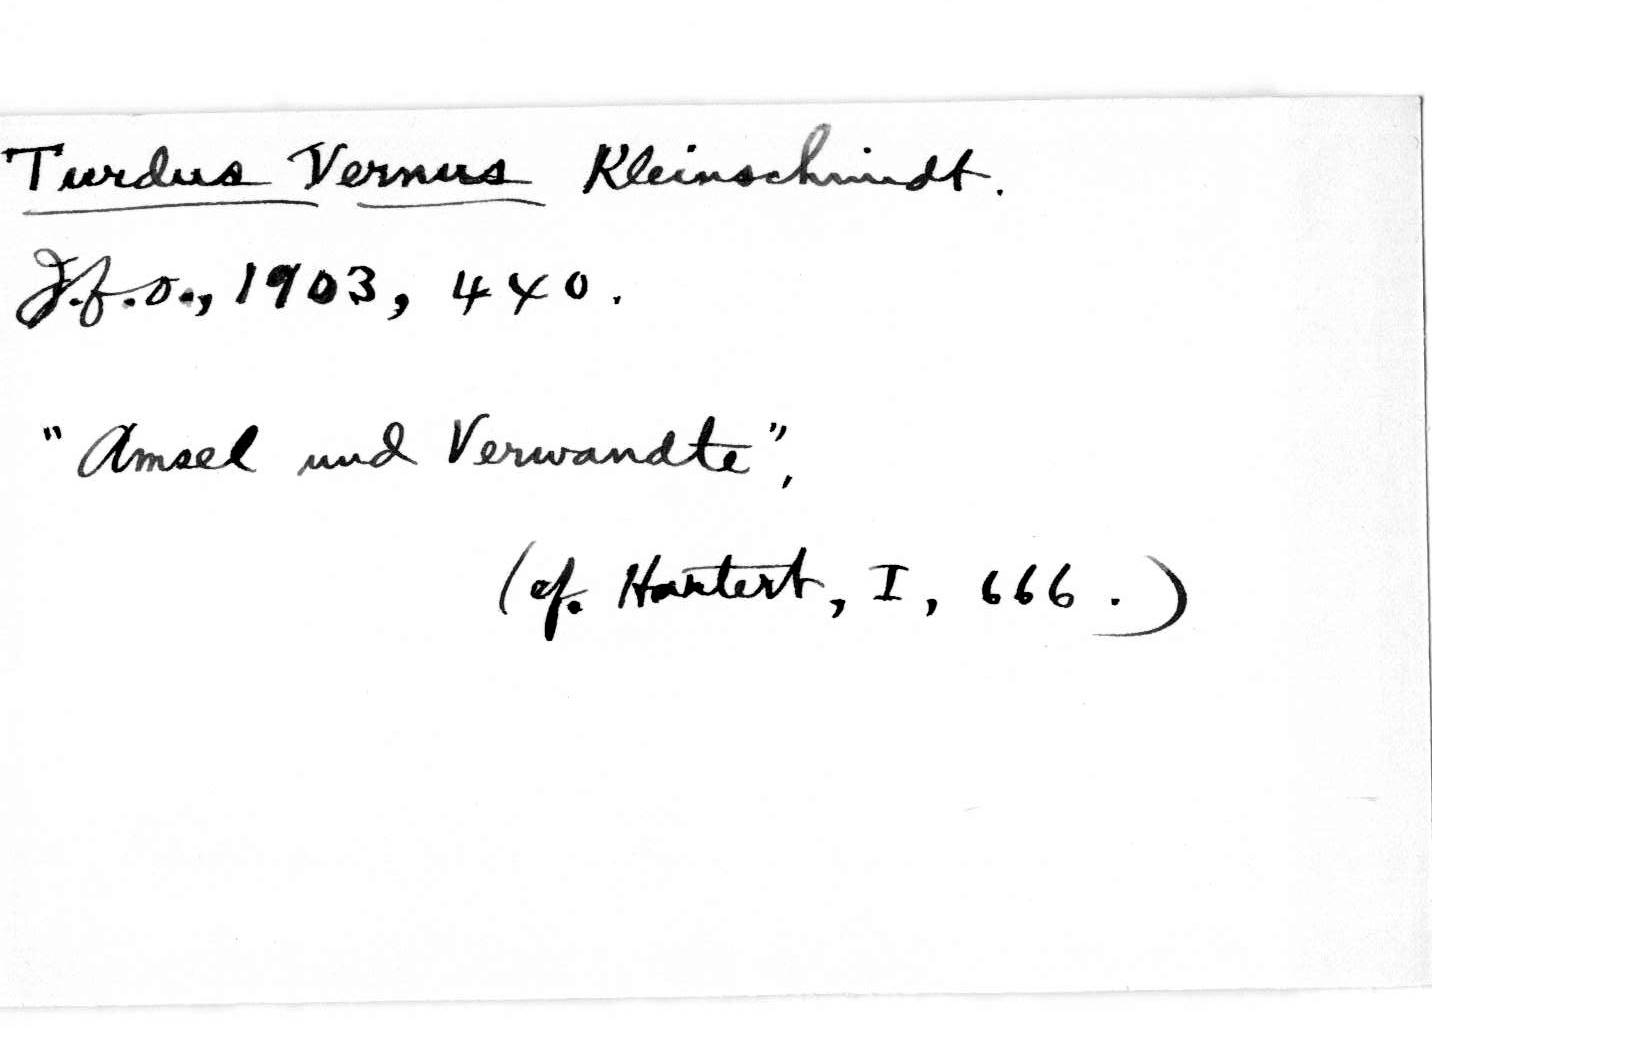 Turdus Vernus Kleinschmidt.
J.f.O., 1903, 440.
"Amsel und Verwandte",
(cf. Hartert, I, 666.)